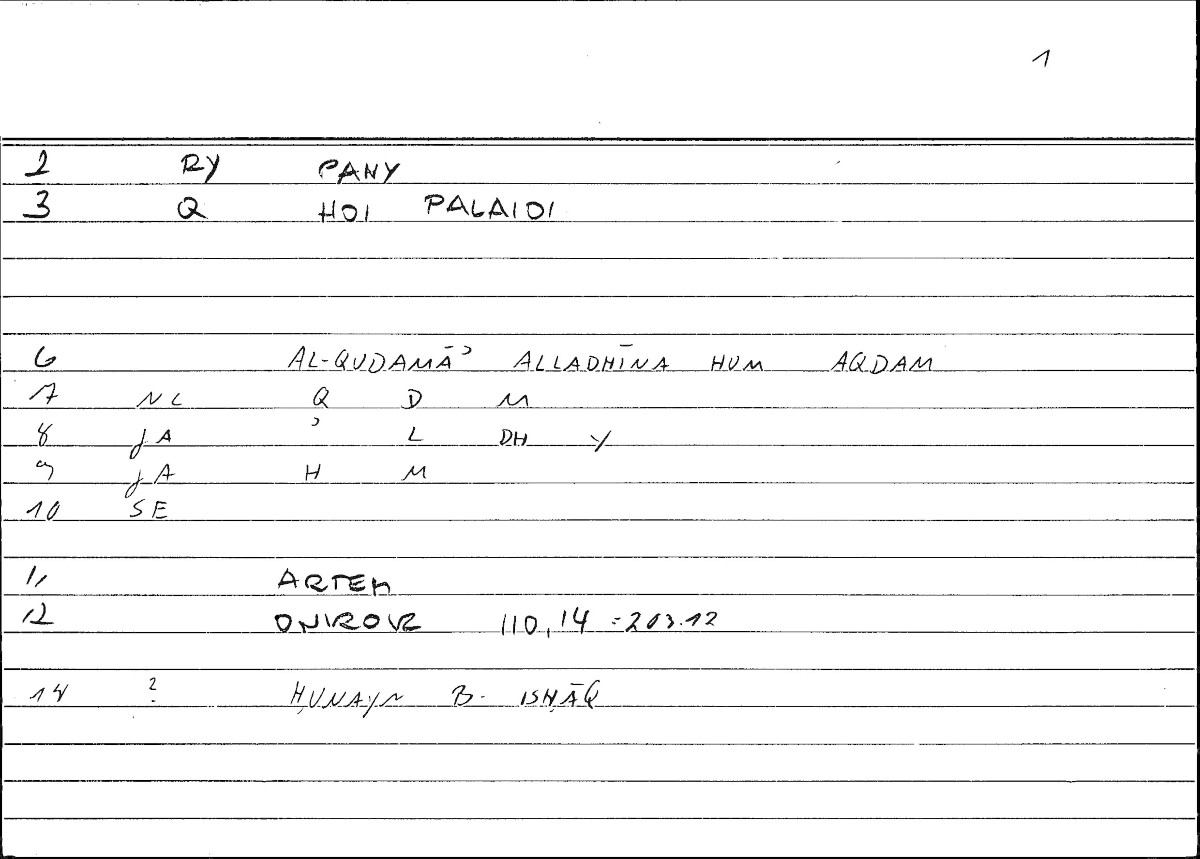 1
2 RY PANY
3 Q HOI PALAIOI
6 AL-QUDAMĀʾ ALLADHĪNA HUM AQDAM
7 NL Q D M
8 JA ʾ L DH Y
9 JA H M
10 SE
11 ARTEM
12 ONIROKR 110,14 =203.12
14 ? ḤUNAYN B. ISḤĀQ